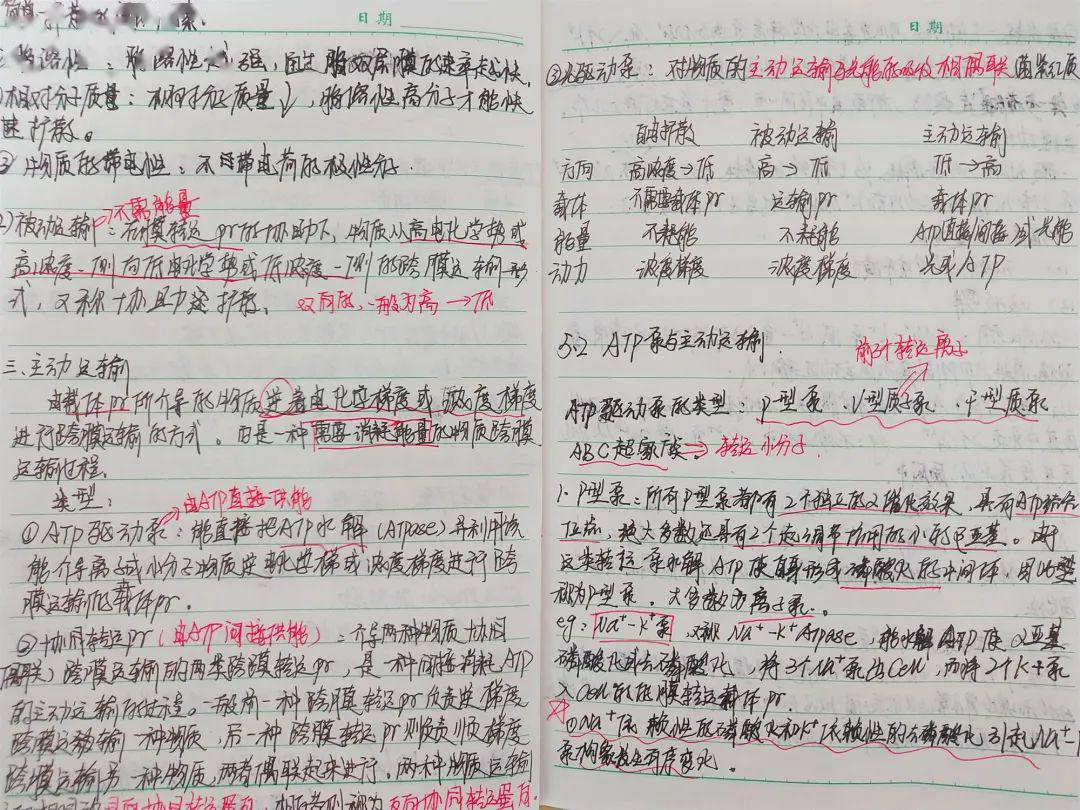 日期
脂溶性强,通过脂双层膜的速率越快.
相对分子质量:相对分子质量↓,脂溶性高分子才能快
速扩散。
③物质的带电性:不带电荷的极性分子.
不需能量
2)被动运输:在膜转运pr的协助下,物质从高电化学势或
高浓度一侧向低电化学势或低浓度一侧的跨膜运输形
式,又称协助扩散。双向的,一般为高→低
三.主动运输
由载体pr所介导的物质逆着电化学梯度或浓度梯度
进行跨膜运输的方式。但是一种需要消耗能量的物质跨膜
运输过程.
类型:
由ATP直接供能
①ATP驱动泵:能直接把ATP水解(ATPase)并利用该
能介导离子或小分子物质逆电化学梯或浓度梯度进行跨
膜运输的载体pr.
②协同转运pr(由ATP间接供能):介导两种物质协同
(偶联)跨膜运输的两类跨膜转运pr,是一种间接消耗ATP
的主动运输的过程。一般前一种跨膜转运pr负责逆梯度
跨膜运输一种物质,后一种跨膜转运pr则负责顺梯度
跨膜运输另一种物质,两者偶联起来进行。两种物质运输
同向协同转运蛋白,相反则称为反向协同转运蛋白.
日期
③光驱动泵:对物质的主动运输与光能的吸收相偶联 菌紫红质
自由扩散 被动运输 主动运输
方向 高浓度→低 高→低 低→高
载体 不需要载体pr 运输pr 载体pr
能量 不耗能 不耗能 ATP直接间接或光能
动力 浓度梯度 浓度梯度 光或ATP
5.2 ATP泵与主动运输.
前3个转运离子
ATP驱动泵的类型:P型泵.V型质子泵.F型质泵
ABC超家族。→转运小分子.
1.P型泵:所有P型泵都有2个独立的α催化亚基,具有ATP结合
位点,绝大多数还具有2个起调节作用的小的β亚基。由于
这类转运泵水解ATP使自身形成磷酸化的中间体,因此
称为P型泵。大多数为离子泵.
eg:Na⁺-K⁺泵,又称Na⁺-K⁺ATPase,能水解ATP使α亚基
磷酸化或去磷酸化,将3个Na⁺泵出Cell,而将2个K+泵
入Cell的的膜转运载体pr
①Na⁺依赖性的磷酸化和K⁺依赖性的去磷酸化引起Na⁺-
泵构象发生有序变化。